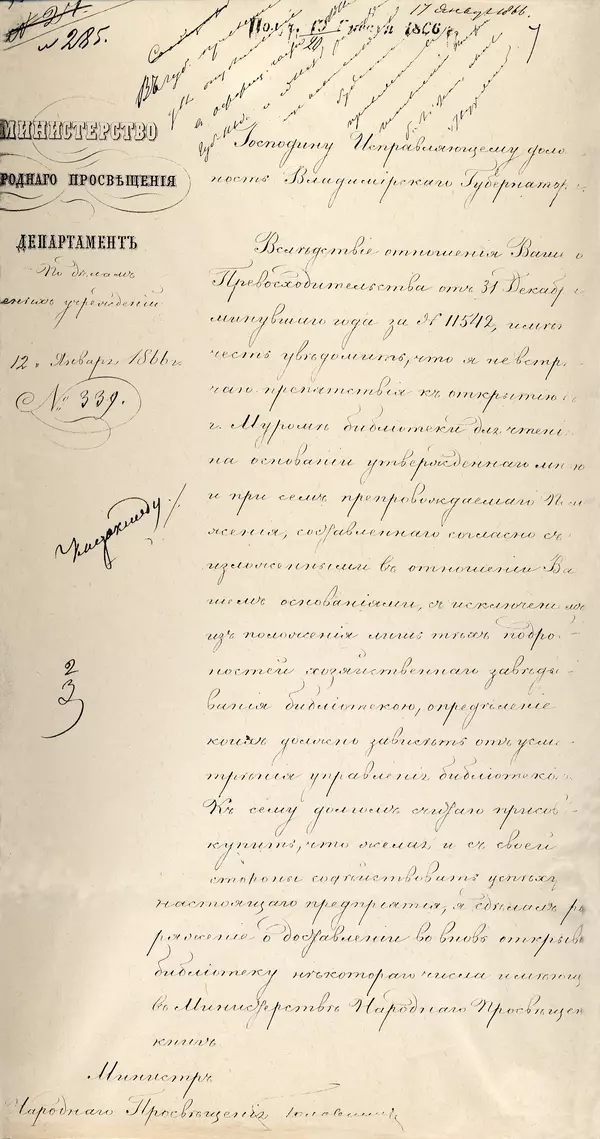 № 285.
17 Января 1866.
Пол. 15 Января 1866 г.
МИНИСТЕРСТВО
РОДНАГО ПРОСВѢЩЕНІЯ
ДЕПАРТАМЕНТЪ
По дѣламъ
еныхъ учрежденій
12 Января 1866 г.
№ 339.
Господину Исправляющему дол
ность Владимірскаго Губернатор
Вслѣдствіе отношенія Ваше
Превосходительства отъ 31 Декабр
минувшаго года за № 11542, имѣю
честь увѣдомить, что я не встрѣ
чаю препятствія къ открытію
г. Муромѣ библіотеки для чтені
на основаніи утвержденнаго мною
и при семъ препровождаемаго Пол
женія, составленнаго согласно съ
изложенными въ отношеніи Ва
шемъ основаніями, съ исключеніемъ
изъ положенія лишь тѣхъ подроб
ностей хозяйственнаго завѣды
ванія библіотекою, опредѣленіе
коихъ должно зависѣть отъ усмо
трѣнія управленія библіотекою
Къ сему долгомъ считаю присово
купить, что желая и съ своей
стороны содѣйствовать успѣху
настоящаго предпріятія, я сдѣлалъ ра
ряженіе о доставленіи во вновь открыв
библіотеку нѣкотораго числа имѣющ
въ Министерствѣ Народнаго Просвѣщен
книгъ.
Министръ
Народнаго Просвѣщенія Головнинъ